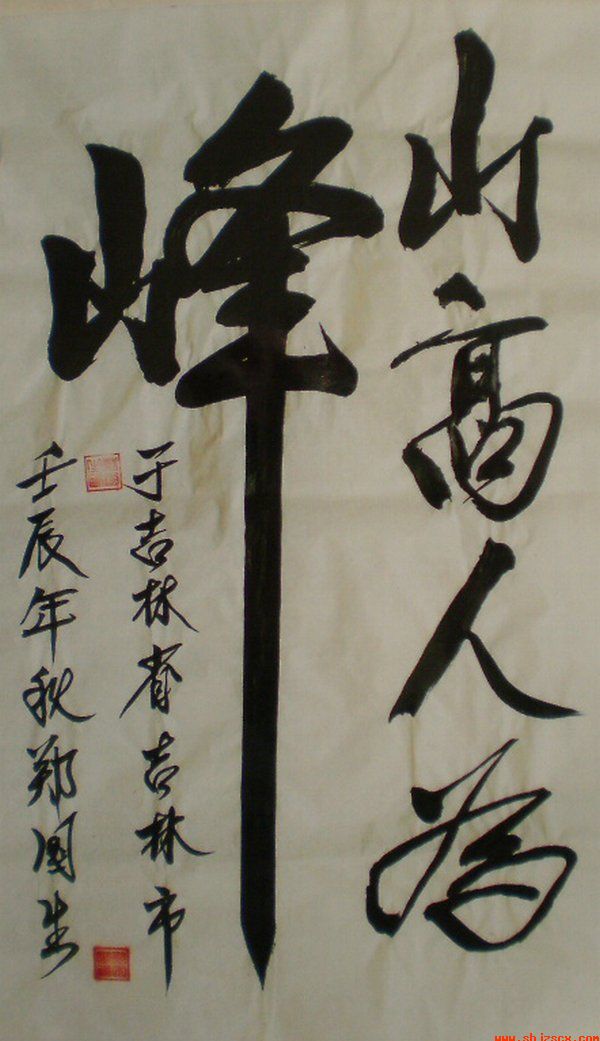 山高人为
峰
于吉林省吉林市
壬辰年秋郑国生
www.shjzscx.com